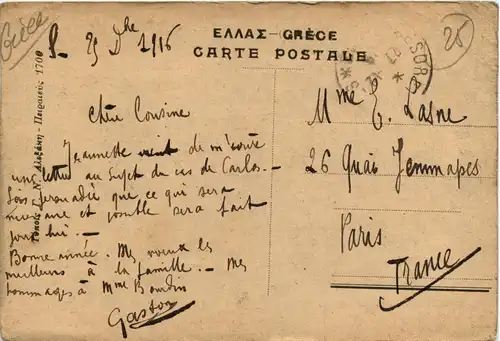 Grèce
25
ΕΛΛΑΣ-GRÈCE
CARTE POSTALE
25 Dbre 1916
Chère Cousine
Jeannette vient de m'écrire
une lettre au sujet du cas de Carlos.
Sois persuadée que ce qui sera
nécessaire et possible sera fait
pour lui.
Bonne année. Mes voeux les
meilleurs à la famille. Mes
hommages à Mme Bourdin
Gaston
Mme E. Lasne
26 Quai Jemmapes
Paris
France